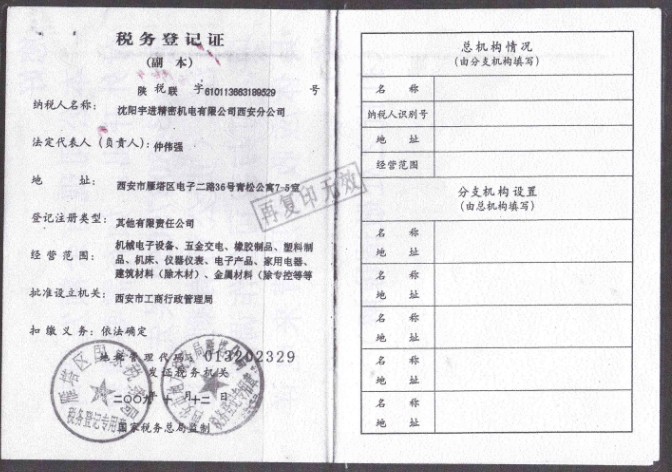 税务登记证
(副 本)
陕 税 联 字 610113663189529 号
纳税人名称： 沈阳宇进精密机电有限公司西安分公司
法定代表人（负责人）： 仲伟强
地 址： 西安市雁塔区电子二路36号青松公寓7-5室
登记注册类型： 其他有限责任公司
经营范围： 机械电子设备、五金交电、橡胶制品、塑料制
品、机床、仪器仪表、电子产品、家用电器、
建筑材料（除木材）、金属材料（除专控等等
批准设立机关： 西安市工商行政管理局
扣缴义务： 依法确定
地税管理代码： 013202329
发证税务机关
二〇〇九年 十 月 十二 日
国家税务总局监制
税务登记专用章
再复印无效
总机构情况
(由分支机构填写)
名 称
纳税人识别号
地 址
经营范围
分支机构设置
(由总机构填写)
名 称
地 址
名 称
地 址
名 称
地 址
名 称
地 址
名 称
地 址